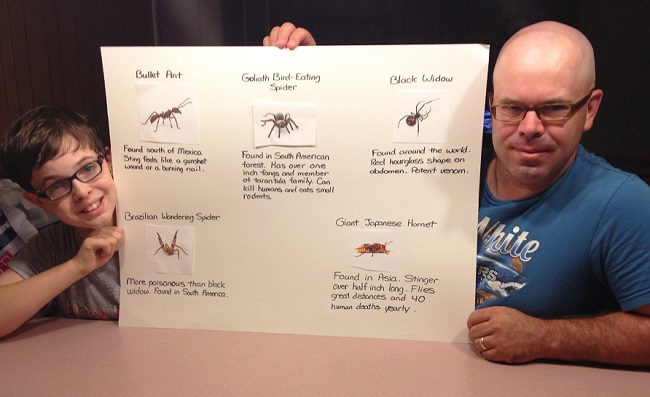 Bullet Ant
Found south of Mexico.
Sting feels like a gunshot
wound or a burning nail.
Goliath Bird-Eating
Spider
Found in South American
forest. Has over one
inch fangs and member
of tarantula family. Can
kill humans and eats small
rodents.
Black Widow
Found around the world.
Red hourglass shape on
abdomen. Potent venom.
Brazilian Wandering Spider
More poisonous than black
widow. Found in South America.
Giant Japanese Hornet
Found in Asia. Stinger
over half inch long. Flies
great distances and 40
human deaths yearly.
White